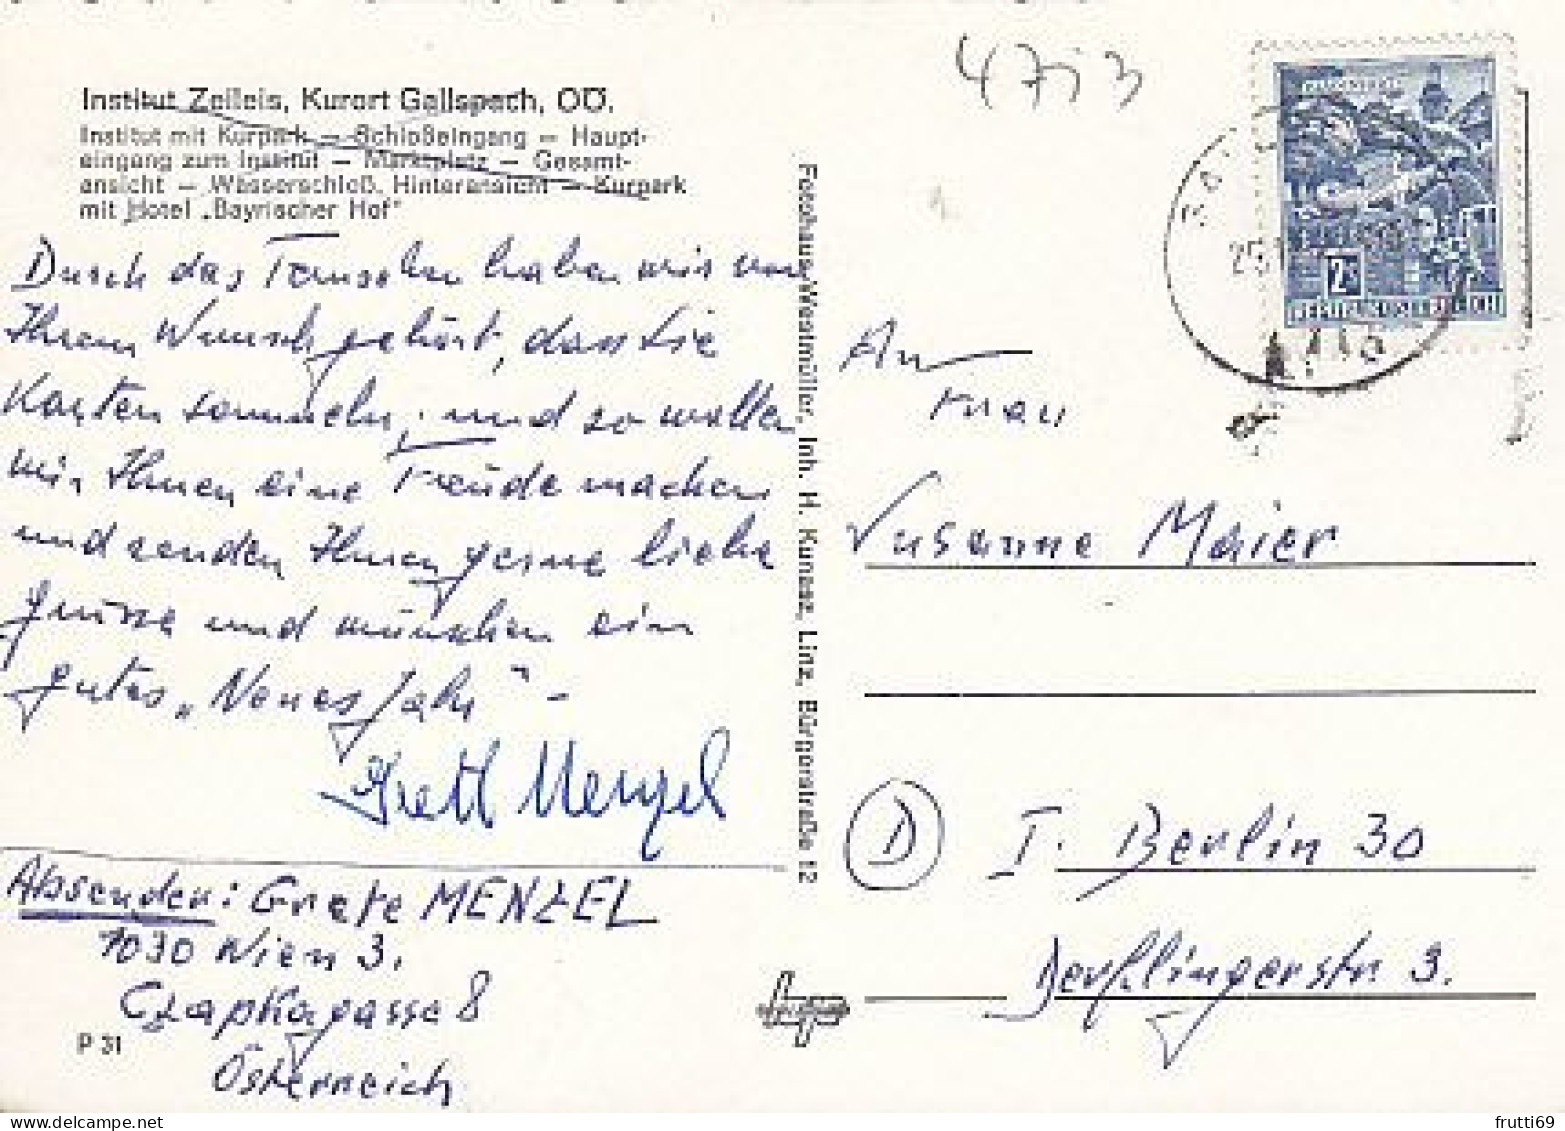 4713
Institut Zeileis, Kurort Gallspach, OÖ.
Institut mit Kurpark — Schloßeingang — Haupt-
eingang zum Institut — Marktplatz — Gesamt-
ansicht — Wasserschloß, Hinteransicht — Kurpark
mit Hotel „Bayrischer Hof"
Durch das Fernsehen haben wir von
Ihrem Wunsch gehört, dass Sie
Karten sammeln, und so wollen
wir Ihnen eine Freude machen
und senden Ihnen gerne liebe
Grüsse und wünschen ein
gutes „Neues Jahr" –
Grett Menzel
Absender: Grete MENZEL
1030 Wien 3.
Czapkagasse 8
Österreich
P 31
Fotohaus Westmüller, Inh. H. Kunasz, Linz, Bürgerstraße 12
2S
REPUBLIK ÖSTERREICH
An
Frau
Susanne Maier
D
1. Berlin 30
Derfflingerstr 3.
frutti69